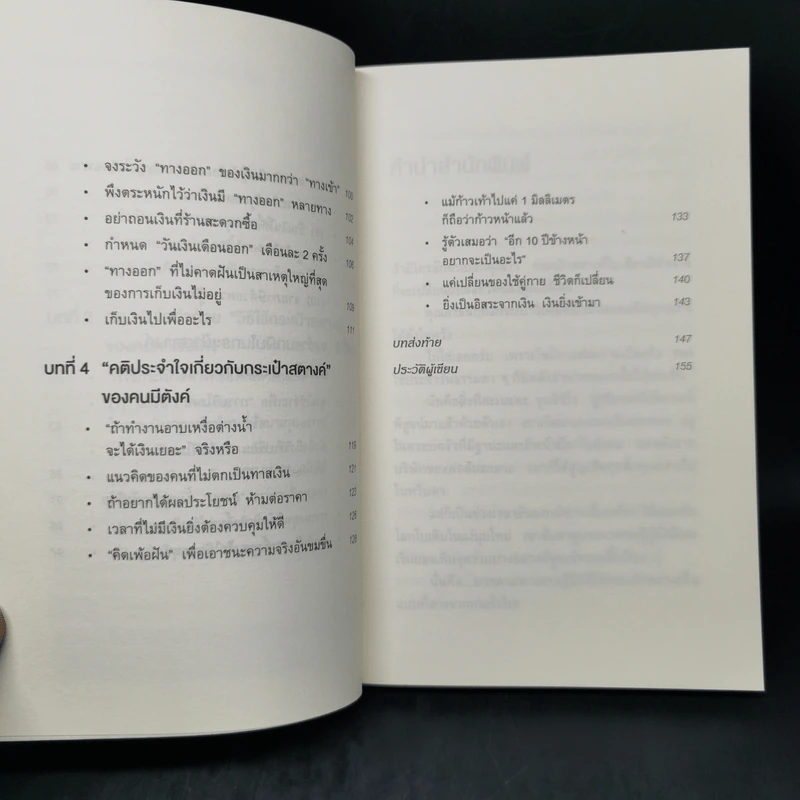 • จงระวัง “ทางออก” ของเงินมากกว่า “ทางเข้า” 100
• พึงตระหนักไว้ว่าเงินมี “ทางออก” หลายทาง 102
• อย่าถอนเงินที่ร้านสะดวกซื้อ 104
• กำหนด “วันเงินเดือนออก” เดือนละ 2 ครั้ง 106
• “ทางออก” ที่ไม่คาดฝันเป็นสาเหตุใหญ่ที่สุด
ของการเก็บเงินไม่อยู่ 109
• เก็บเงินไปเพื่ออะไร 111
บทที่ 4 “คติประจำใจเกี่ยวกับกระเป๋าสตางค์”
ของคนมีตังค์
• “ถ้าทำงานอาบเหงื่อต่างน้ำ
จะได้เงินเยอะ” จริงหรือ 119
• แนวคิดของคนที่ไม่ตกเป็นทาสเงิน 121
• ถ้าอยากได้ผลประโยชน์ ห้ามต่อราคา 123
• เวลาที่ไม่มีเงินยิ่งต้องควบคุมให้ดี 126
• “คิดเพ้อฝัน” เพื่อเอาชนะความจริงอันขมขื่น 128
• แม้ก้าวเท้าไปแค่ 1 มิลลิเมตร
ก็ถือว่าก้าวหน้าแล้ว 133
• รู้ตัวเสมอว่า “อีก 10 ปีข้างหน้า
อยากจะเป็นอะไร” 137
• แค่เปลี่ยนของใช้คู่กาย ชีวิตก็เปลี่ยน 140
• ยิ่งเป็นอิสระจากเงิน เงินยิ่งเข้ามา 143
บทส่งท้าย 147
ประวัติผู้เขียน 155